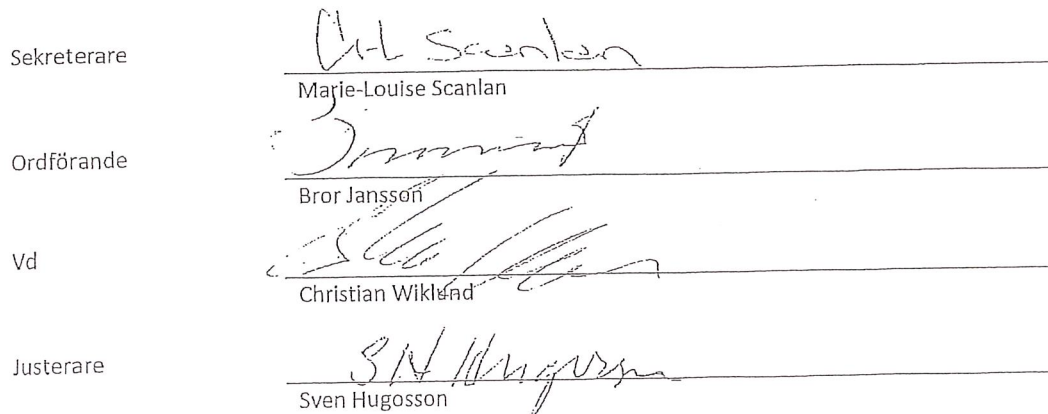 Sekreterare
Scanlan
Marie-Louise Scanlan
Ordförande
Bror Jansson
Vd
Christian Wiklund
Justerare
Sven Hugosson